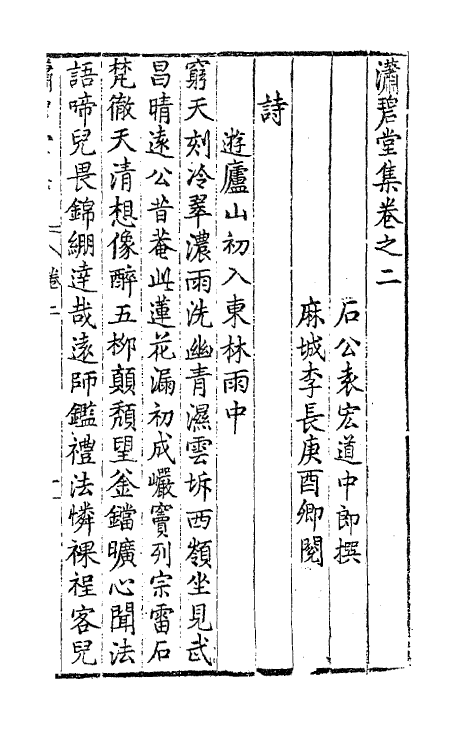 瀟碧堂集卷之二
石公袁宏道中郎撰
麻城李長庚酉卿閱
詩
遊廬山初入東林雨中
窮天刻冷翠濃雨洗幽青濕雲坼西嶺坐見武
昌晴遠公昔菴此蓮花漏初成巖竇列宗雷石
梵徹天清想像醉五柳顛頹望釡鐺曠心聞法
語啼兒畏錦綳達哉遠師鑑禮法憐裸裎客兒
卷二